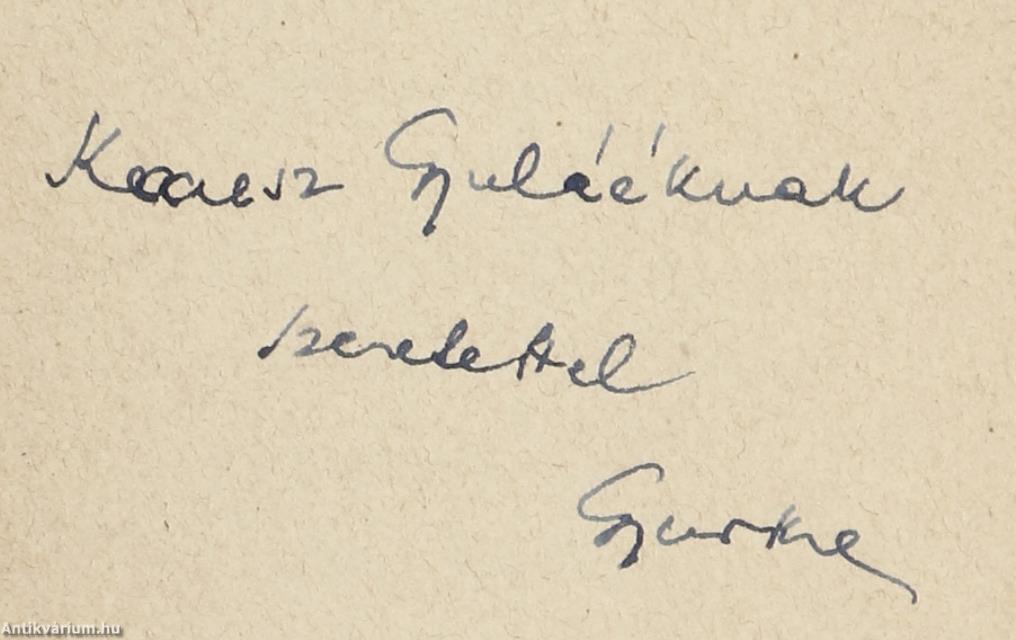 Gyuláéknak
szeretettel
Gyurka
Antikvárium.hu